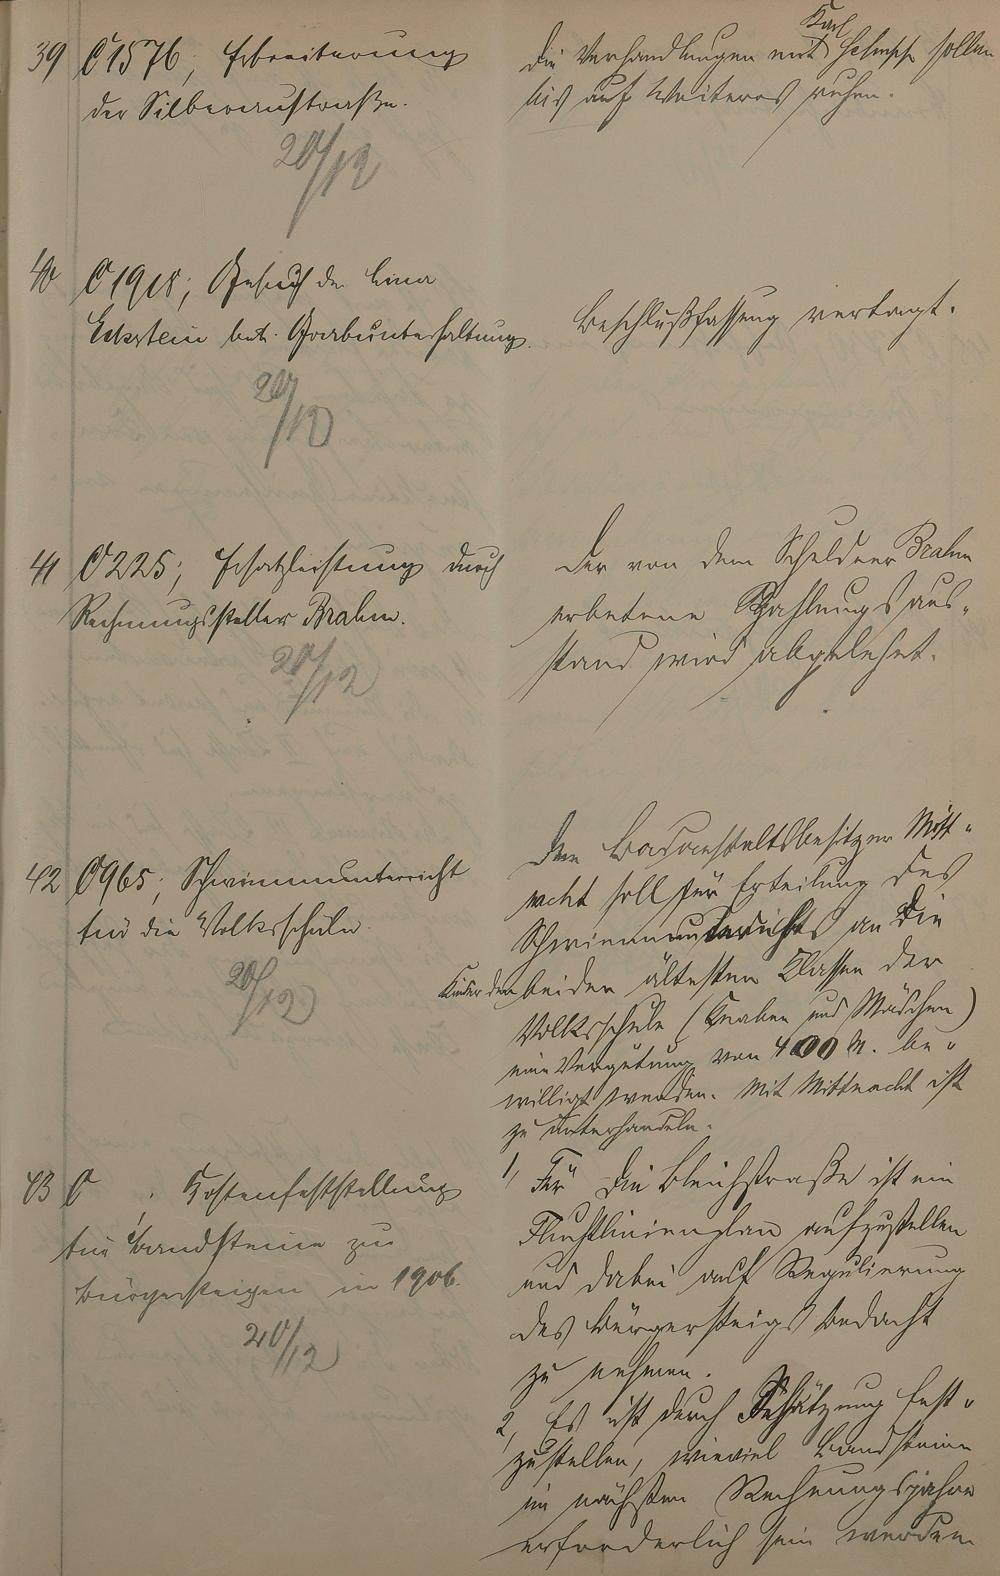 39 C 1576; Erbreiterung
der Silberaustraße.
20/12
Karl
Die Verhandlungen mit Schupp sollen
bis auf Weiteres ruhen.
40 C 1918; Gesuch der Lina
Eckstein betr. Grabunterhaltung.
20/12
Beschlußfassung vertagt.
41 C 225; Ersatzleistung durch
Rechnungssteller Brahm.
20/12
Der von dem Schuldner Brahm
erbetene Zahlungsaus-
stand wird abgelehnt.
42 C 965; Schwimmunterricht
für die Volksschule
20/12
Dem Badeanstaltsbesitzer Mitt-
nacht soll für Erteilung des
Schwimmunterrichts an die
Kinder der beiden ältesten Klassen der
Volksschule (Knaben und Mädchen)
eine Vergütung von 400 M. be-
willigt werden. Mit Mittnacht ist
zu unterhandeln.
43 C ; Kostenfeststellung
für Bandsteine zu
Bürgersteigen in 1906.
20/12
1, Für die Bleichstraße ist ein
Fluchtlinienplan aufzustellen
und dabei auf Regulierung
des Bürgersteigs Bedacht
zu nehmen.
2, Es ist durch Schätzung fest-
zustellen, wieviel Bandsteine
im nächsten Rechnungsjahre
erforderlich sein werden